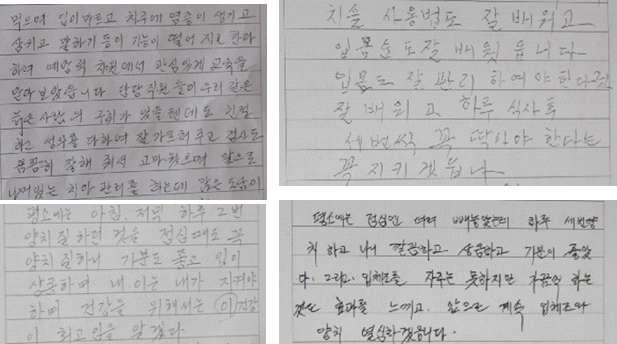 먹으며 입이 마르고 치주에 염증이 생기고
삼키고 말하기 등이 기능이 떨어 지료 한다
하여 예방적 차원에서 관심있게 교육을
받아 보았습니다 담당 직원 들이 우리 같은
늙은 사람, 의 구취가 있을텐데도 친절
하고 성의를 다하여 잘 가르쳐 주고 검사도
꼼꼼히 잘해 줘서 고마웠으며 앞으로
남어있는 치아 관리를 하는데 많은 도움이
치솔 사용법도 잘 배워고
입몸운도 잘 배웟읍니다
입몸도 잘 관리 하여야 한다것
잘 배워고 하루 식사 후
세번씩 꼭 딱아야 한다는
꼭 지키겠읍니다
평소에는 아침, 저녁 하루 2번
양치질 하던 것을 점심때도 꼭
양치질하니 기분도 좋고 입이
상쾌하며 내 이는 내가 지켜야
하며 건강을 위해서는 (이)건강
이 최고임을 알겠다
평소에는 점심엔 여러 빼놓았는데 하루 세번양
치 하고 나니 깔끔하고 상큼하고 기분이 좋았
다. 그리고 입체조를 자주는 못하지만 가끔씩 하는
것도 효과를 느끼고. 앞으로 계속 입체조와
양치 열심히 하겠읍니다.